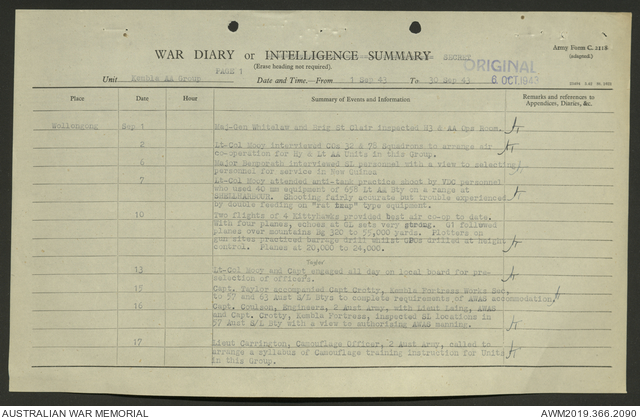 Army Form C. 2118
(adapted)
WAR DIARY or INTELLIGENCE SUMMARY SECRET
(Erase heading not required).
ORIGINAL
PAGE 1
Unit Kembla AA Group Date and Time.—From 1 Sep 43 To 30 Sep 43
6 OCT 1943
Place Date Hour Summary of Events and Information Remarks and references to
Appendices, Diaries, &c.
Wollongong Sep 1 Maj-Gen Whitelaw and Brig St Clair inspected H3 & AA Ops Room.
2 Lt-Col Mooy interviewed COs 32 & 76 Squadrons to arrange air
co-operation for Hy & Lt AA Units in this Group.
6 Major Benporath interviewed GL personnel with a view to selecting
personnel for service in New Guinea
7 Lt-Col Mooy attended anti-tank practice shoot by VDC personnel
who used 40 mm equipment of 658 Lt AA Bty on a range at
SHELLHARBOUR. Shooting fairly accurate but trouble experienced
by double feeding on "rat trap" type equipment.
10 Two flights of 4 Kittyhawks provided best air co-op to date.
With four planes, echoes at GL sets very strong. G1 followed
planes over mountains Bg 320 to 55,000 yards. Plotters on
gun sites practiced barrage drill whilst GPOs drilled at height
control. Planes at 20,000 to 24,000.
Taylor
13 Lt-Col Mooy and Capt engaged all day on local board for pre-
selection of officers.
15 Capt. Taylor accompanied Capt Crotty, Kembla Fortress Works Sec.
to 57 and 63 Aust S/L Btys to complete requirements of AWAS accommodation.
16 Capt. Coulson, Engineers, 2 Aust Army, with Lieut Laing, AWAS
and Capt. Crotty, Kembla Fortress, inspected SL locations in
57 Aust S/L Bty with a view to authorising AWAS manning.
17 Lieut Carrington, Camouflage Officer, 2 Aust Army, called to
arrange a syllabus of Camouflage training instruction for Units
in this Group.
AUSTRALIAN WAR MEMORIAL
AWM2019.366.2090